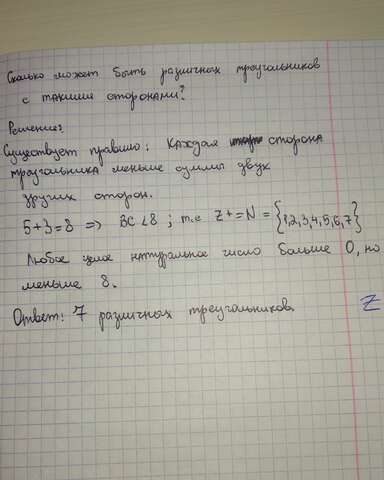 Сколько может быть различных треугольников
с такими сторонами?
Решение:
Существует правило: Каждая сторона
треугольника меньше суммы двух
других сторон.
5+3=8 => BC<8; т.е Z+=N={1,2,3,4,5,6,7}
Любое целое натуральное число больше 0, но
меньше 8.
Ответ: 7 различных треугольников.
Z